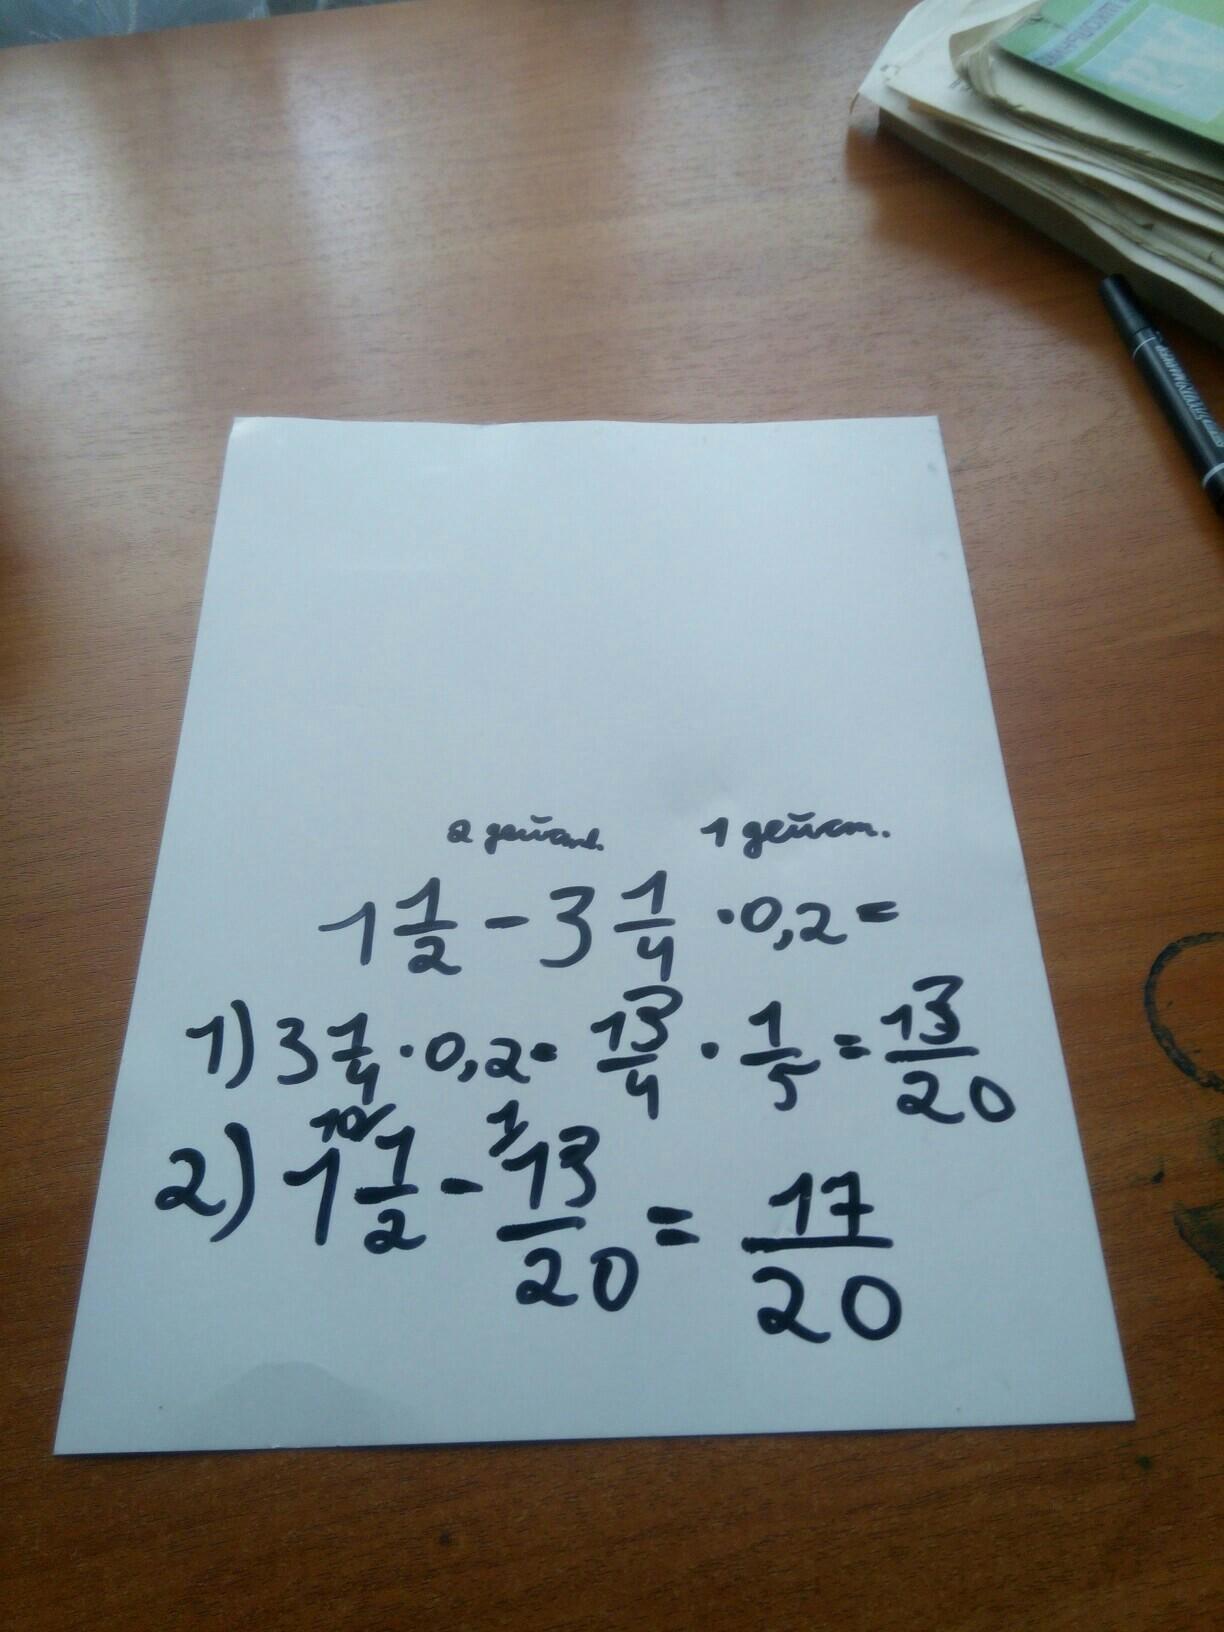 2 действ. 1 действ.
1 1/2 - 3 1/4 · 0,2 =
1) 3 1/4 · 0,2 = 13/4 · 1/5 = 13/20
2) 1 10/ 1/2 - 1/ 13/20 = 17/20